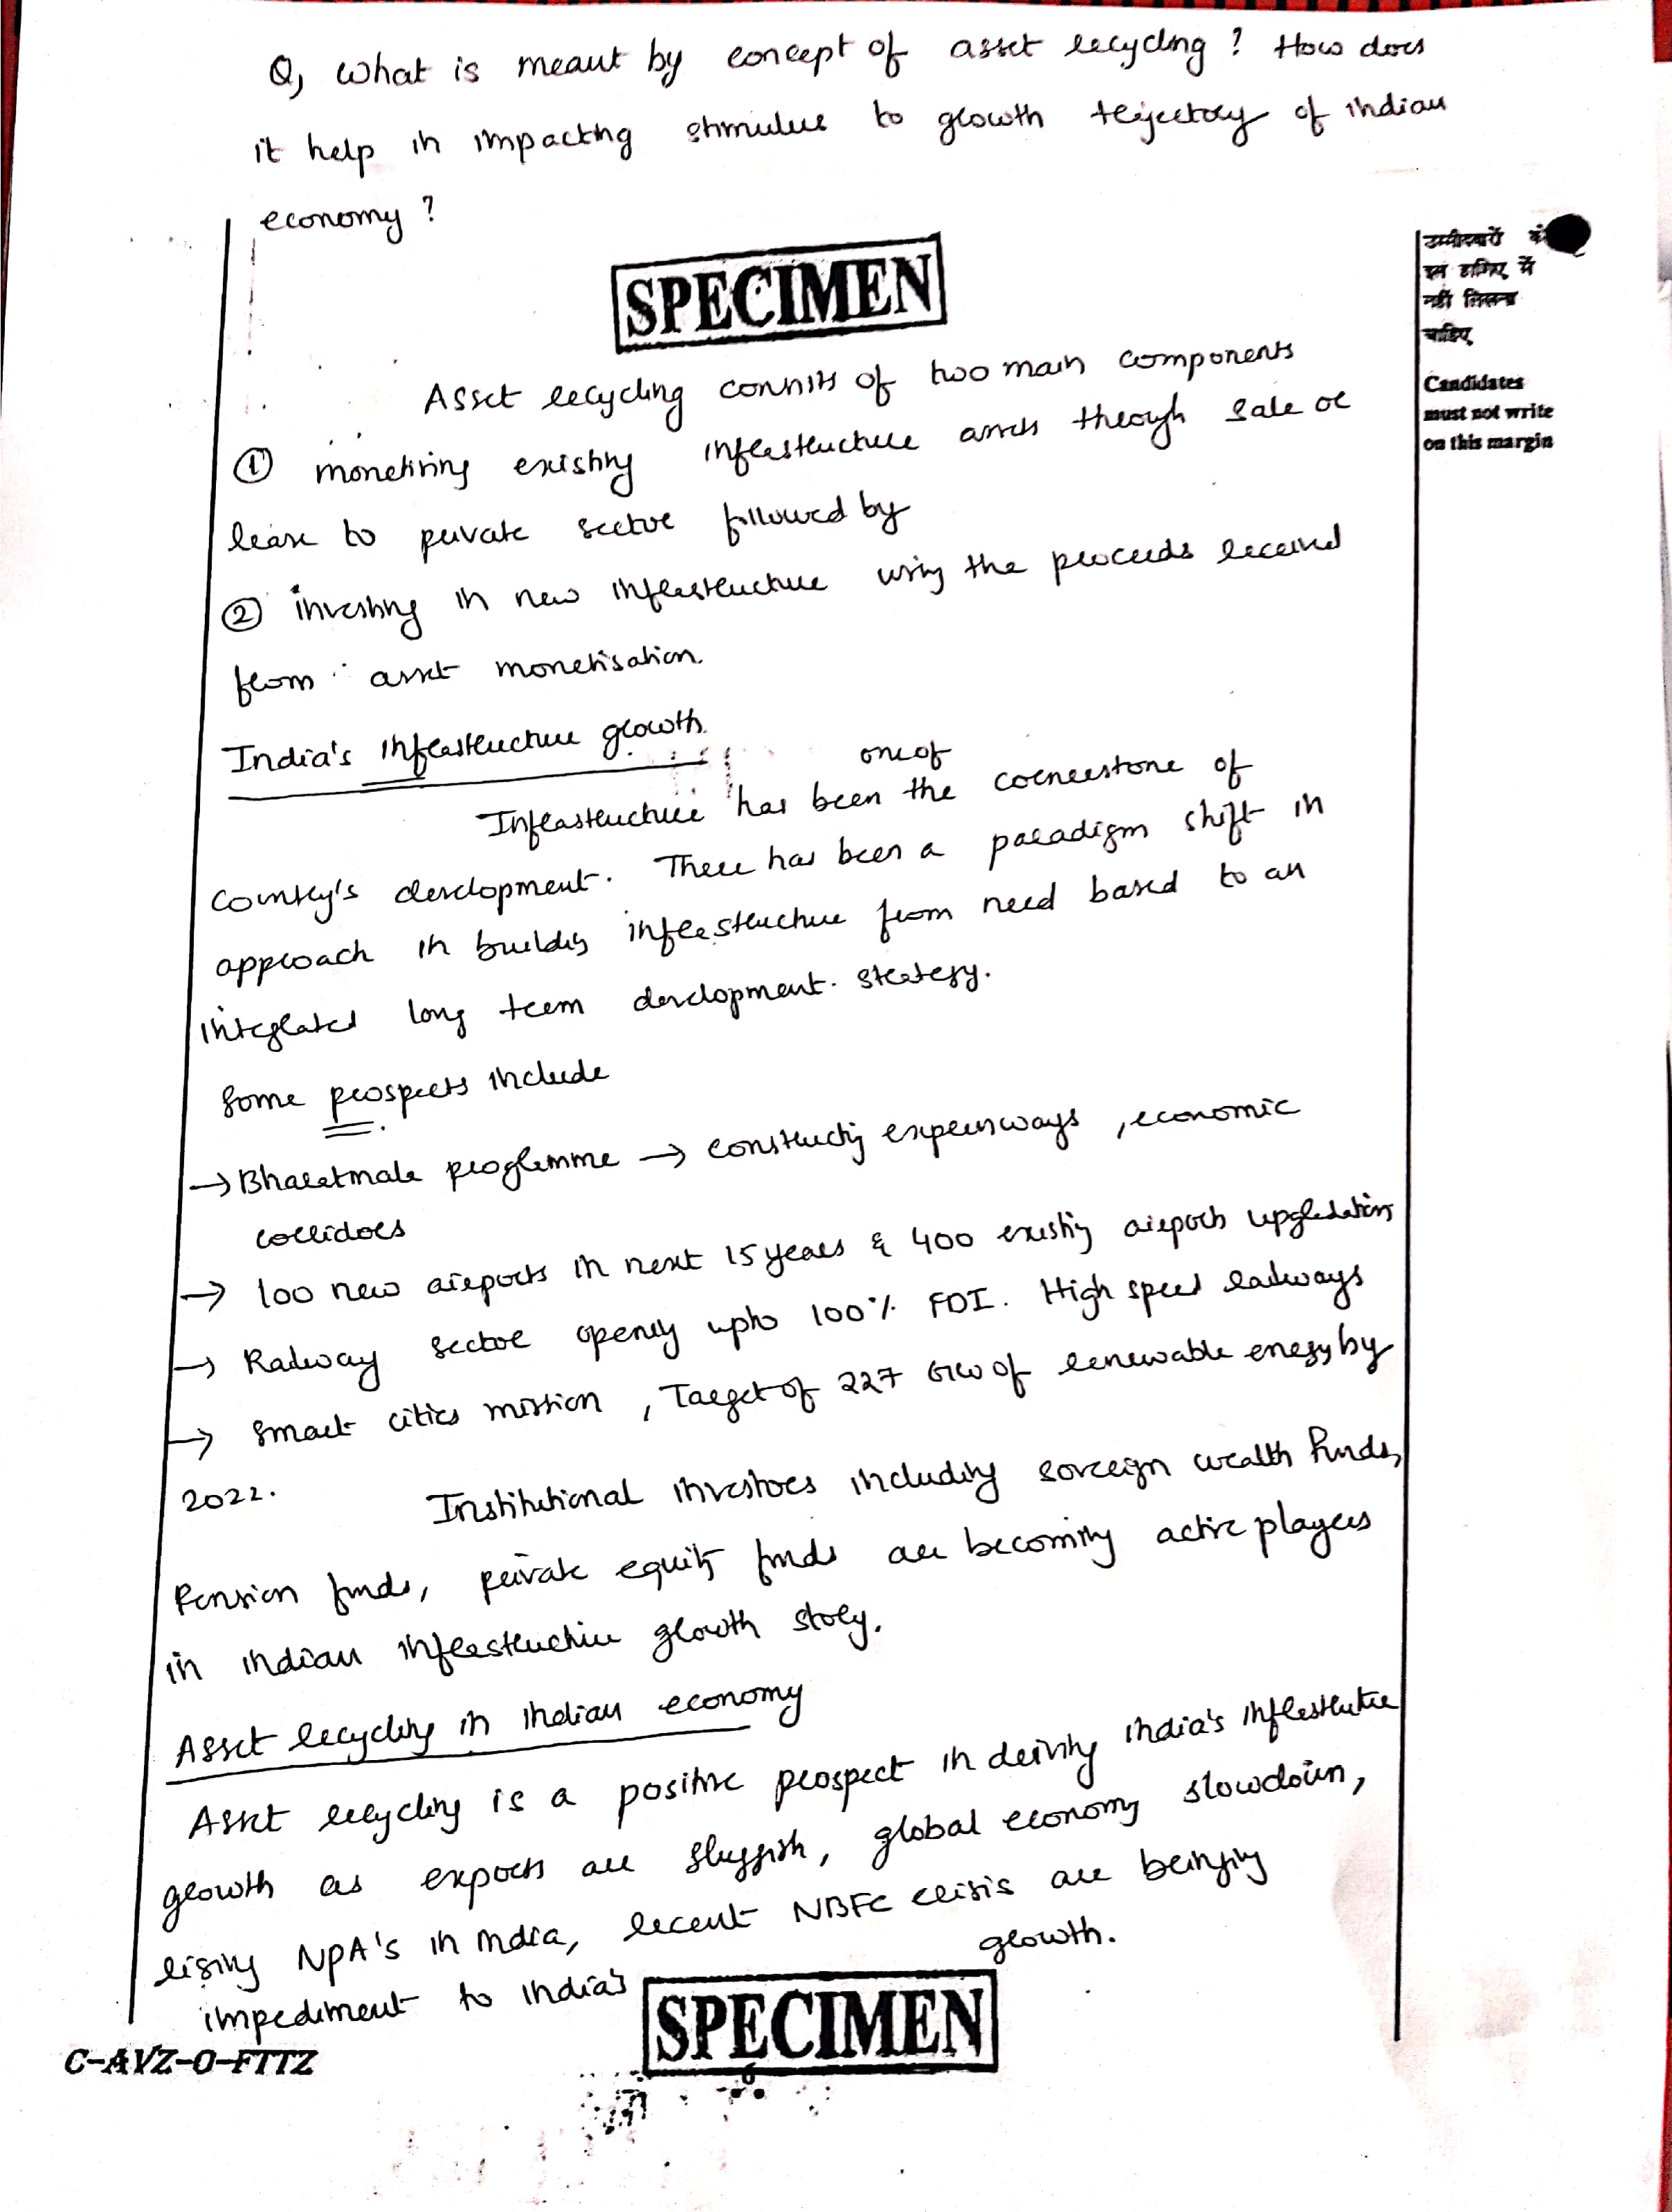 Q, what is meant by concept of asset recycling ? How does
it help in impacting stimulus to growth trejectory of indian
economy ?
SPECIMEN
उम्मीदवारों को
इस हाशिए में
नहीं लिखना
चाहिए
Candidates
must not write
on this margin
Asset recycling consists of two main components
① monetising existing infrastructure assets through sale or
lease to private sector followed by
② investing in new infrastructure using the proceeds received
from asset monetisation.
India's infrastructure growth.
one of
Infrastructure has been the cornerstone of
Country's development. There has been a paradigm shift in
approach in building infrastructure from need based to an
integrated long term development. strategy.
Some prospects include
→ Bharatmala programme → constructing expressways , economic
corridors
→ 100 new airports in next 15 years & 400 existing airports upgradation
→ Railway sector opening upto 100% FDI. High speed railways
→ Smart cities mission , Target of 227 GW of renewable energy by
2022.
Institutional investors including soveregn wealth funds,
Pension funds, private equity funds are becoming active players
in indian infrastructure growth story.
Asset recycling in indian economy
Asset recycling is a positive prospect in driving india's infrastructure
growth as exports are sluggish, global economy slowdown,
rising NPA's in India, recent NBFC crisis are bringing
impediment to india's growth.
SPECIMEN
C-AVZ-O-FTTZ
6